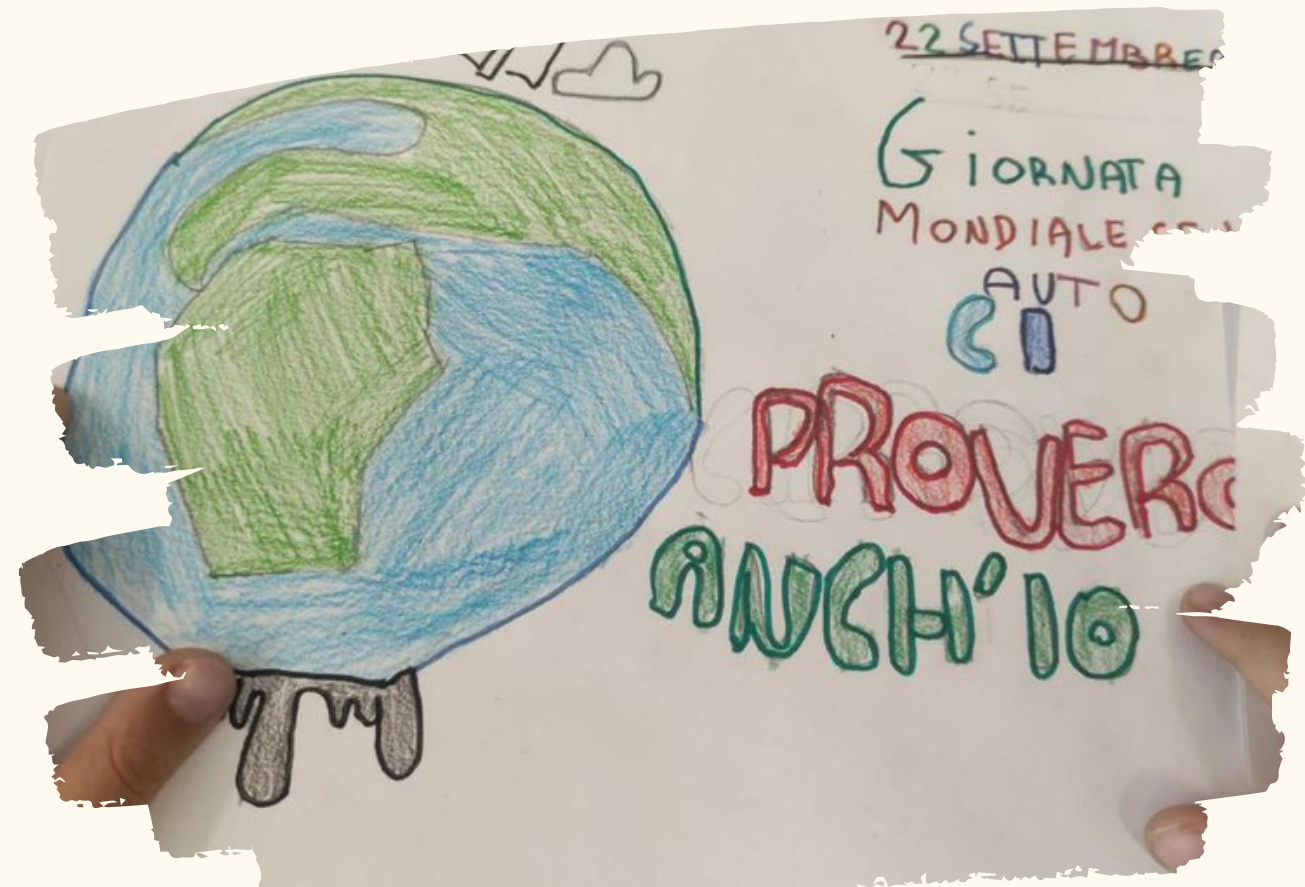 22 SETTEMBRE
GiORNATA
MONDIALE
AUTO
CI
PROVERO
ANCH'IO